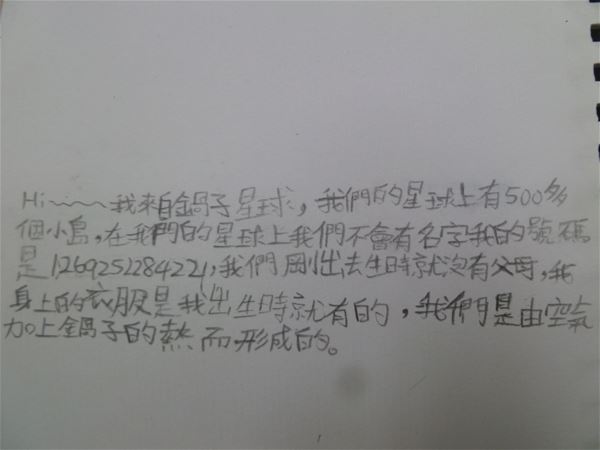 Hi~~~我來自鍋子星球，我們的星球上有500多
個小島，在我們的星球上我們不會有名字我的號碼
是1269251284221，我們剛出去生時就沒有父母，我
身上的衣服是我出生時就有的，我們是由空氣
加上鍋子的熱而形成的。